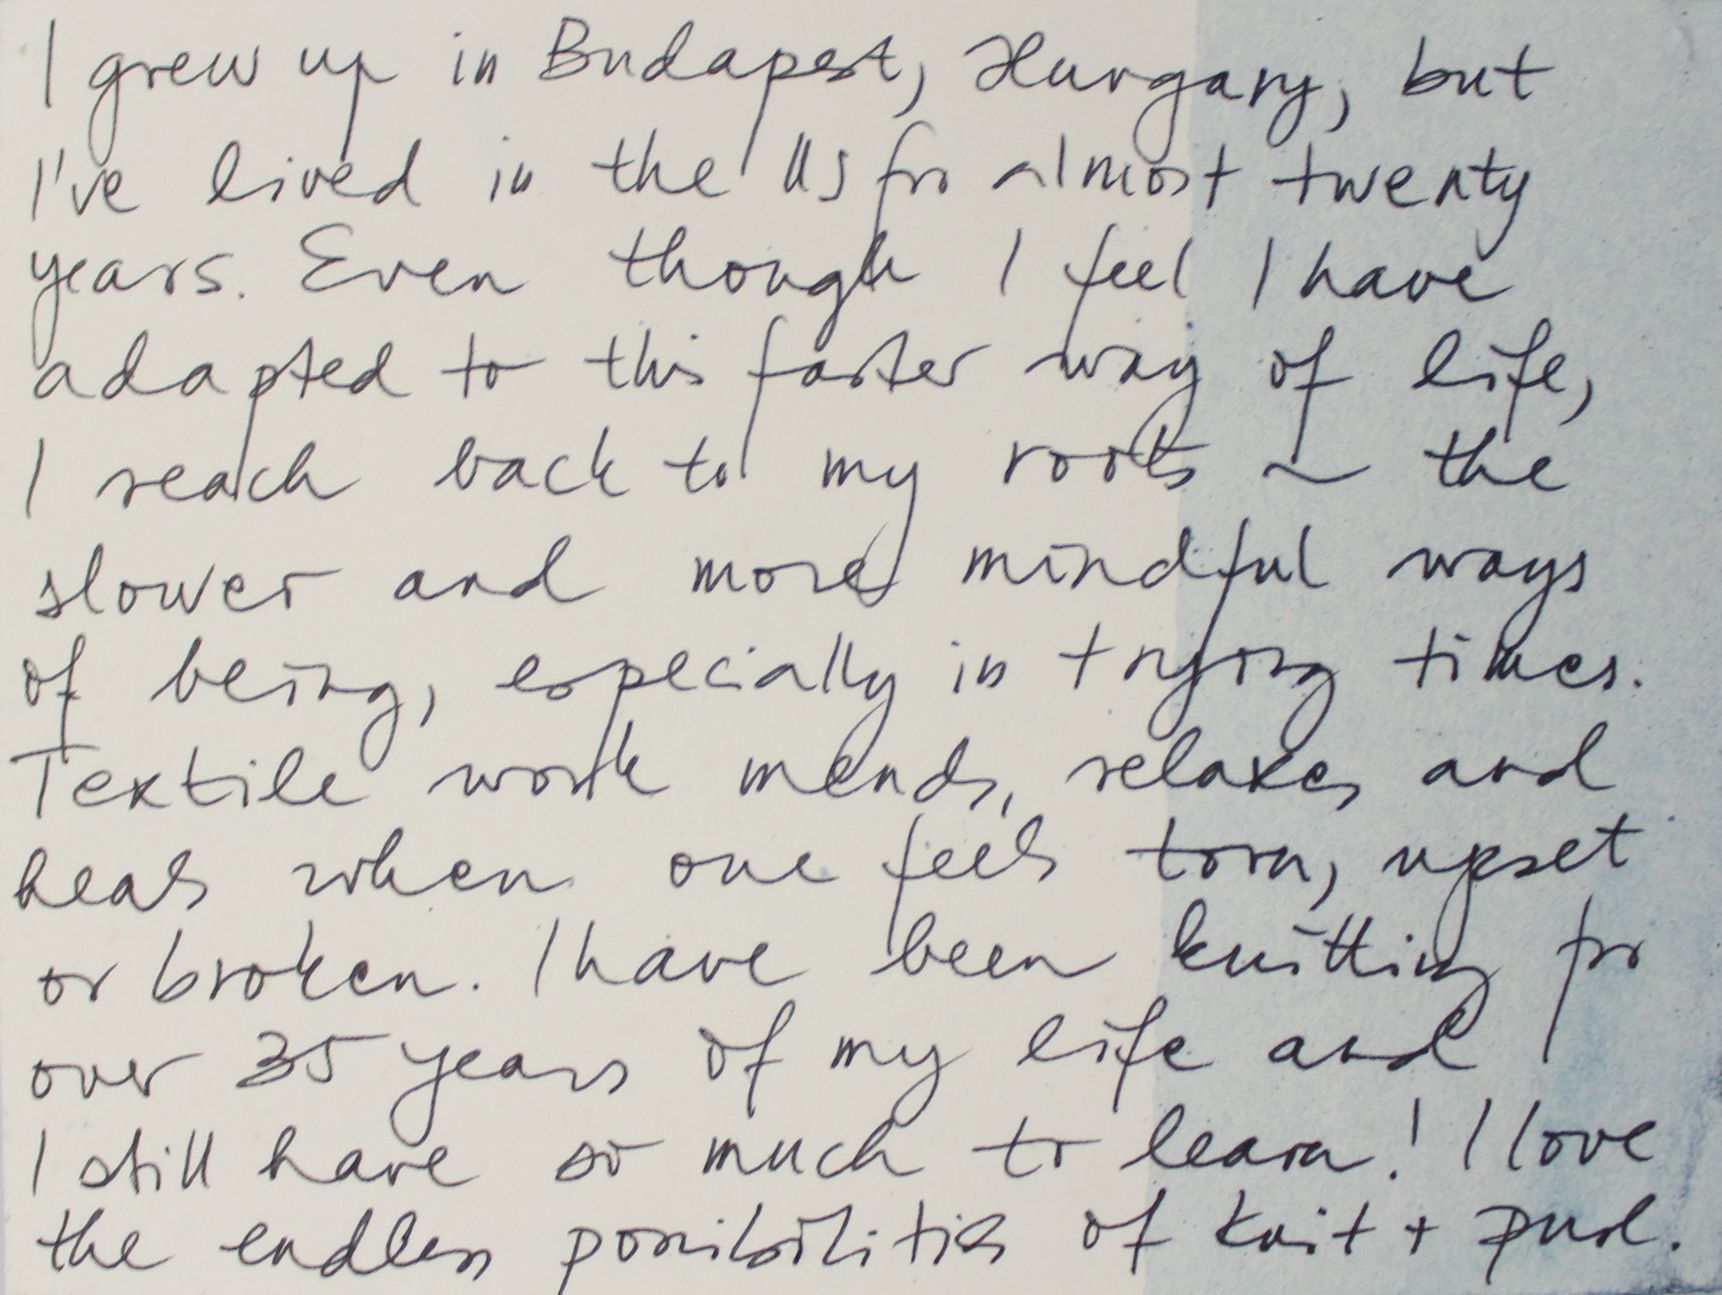 I grew up in Budapest, Hungary, but
I've lived in the US for almost twenty
years. Even though I feel I have
adapted to this faster way of life,
I reach back to my roots ~ the
slower and more mindful ways
of being, especially in trying times.
Textile work mends, relaxes and
heals when one feels torn, upset
or broken. I have been knitting for
over 35 years of my life and
I still have so much to learn! I love
the endless possibilities of knit + purl.